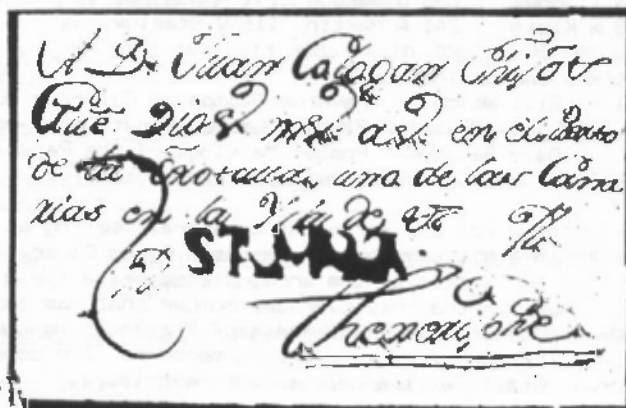 A Dn Juan Calogan hijo
Que Dios ms as en el Puerto
de la Orotava, una de las Cana
rias en la Ysla de
STMALA
Thenerife